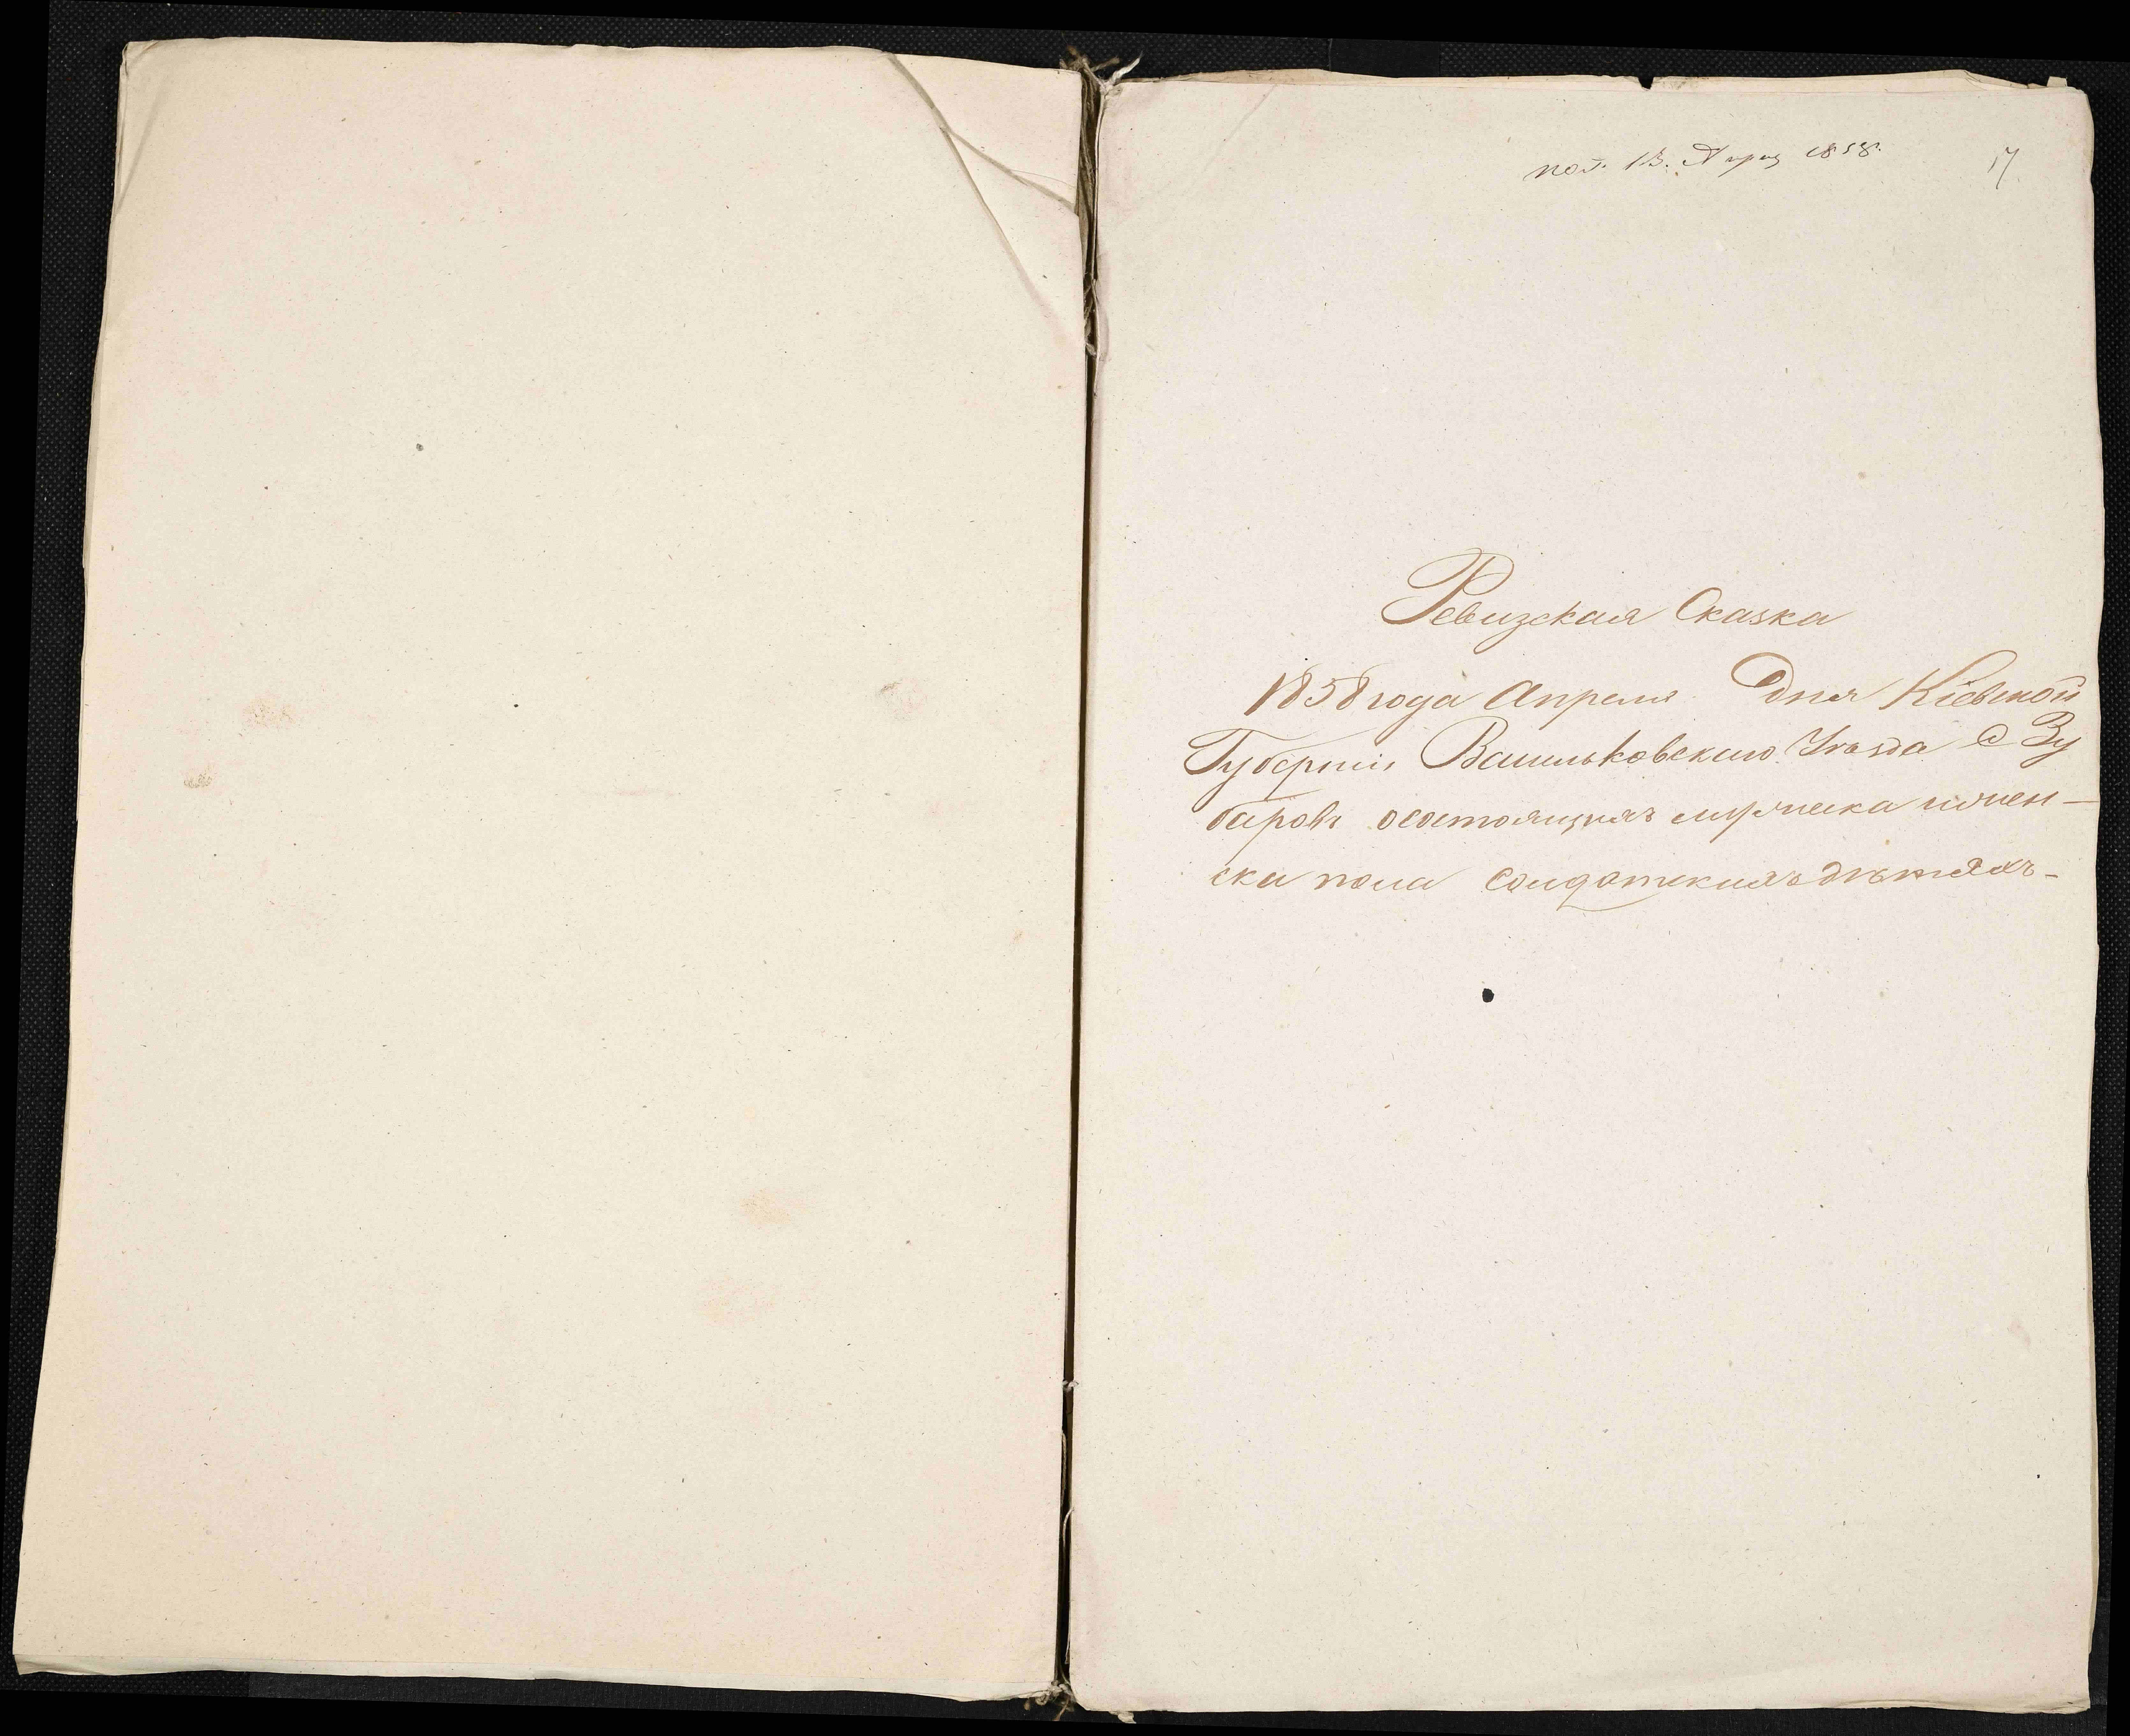 пол. 13. Апрѣ 1858.
17
Ревизская Сказка
1858 года Апреля Дня Кіевской
Губерніи Васильковскаго Уѣзда С Зу
баровъ осостоящихъ мужческа иженъ-
ска пола солдатскихъ дѣтяхъ-